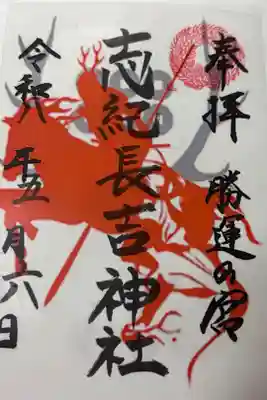 奉拝 勝運の宮
志紀長吉神社
令和八年五月六日